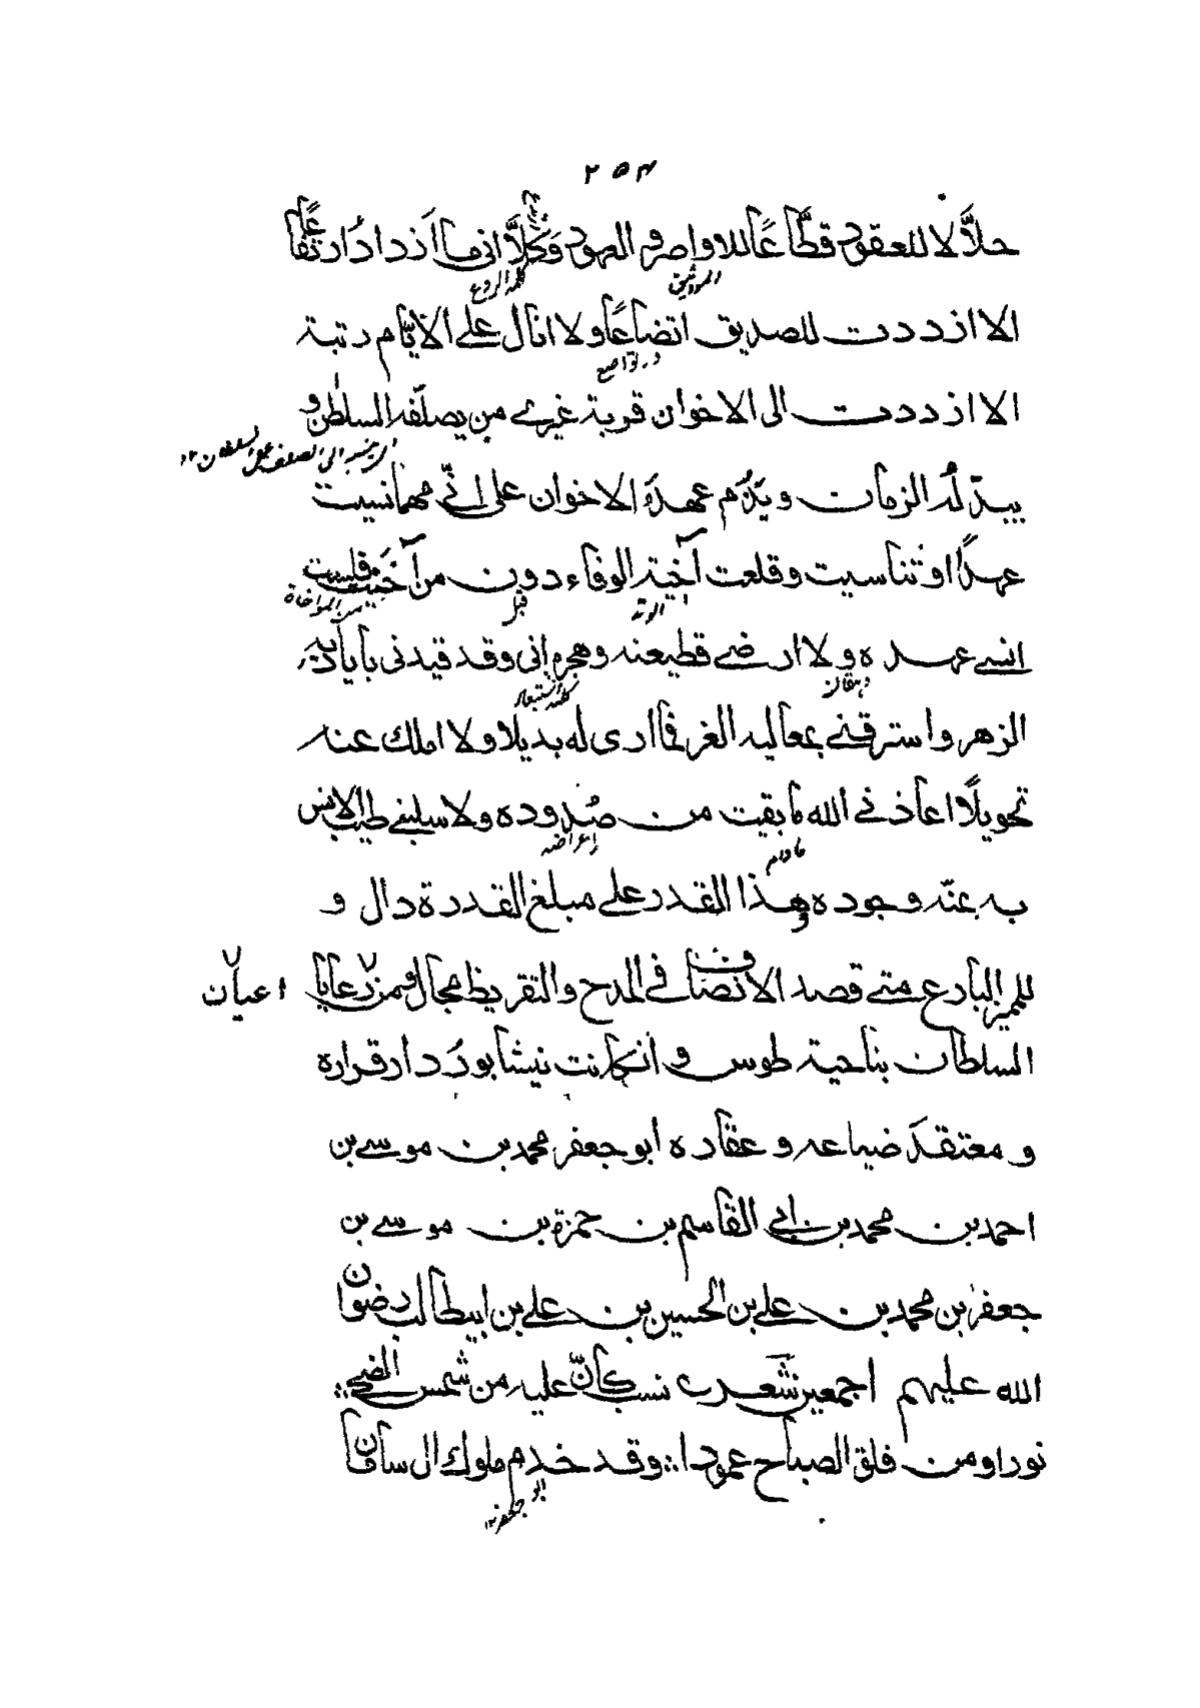 ٢٥٤
حلاّلا للعقود قطّاعًا للاواصر والعهود وكلاّ انى ما ازداد ارتفاعًا
المواثيق كلمة الردع
الا ازددت للصديق اتضاعًا ولا انال على الايّام رتبة
تواضع
الا ازددت الى الاخوان قربة غيرى من يصلّفه السلطان و
السلطان
يبدّله الزمان ويذم عهده الاخوان على انّى مهما نسيت
عهدًا او تناسيت وقلعت آخية الوفاء دون من آخيت فلست
الوتد قبل من المواخاة
انسى عهده ولا ارضى قطيعته وهجرانى وقد قيدنى باياديه
الزهر واسترقنى بمعاليه الغر فما ارى له بديلا ولا املك عنه
تحويلًا واعاذنى الله ما بقيت من صدوده ولا سلبنى طيب الانس
مادام إعراضه
به بمنّه وجوده وهذا القدر على مبلغ القدرة دال و
للمميز البارع متى قصد الانصاف فى المدح والتقريظ مجال ومن رعايا اعيان
السلطان بناحية طوس وان كانت نيشابور دار قراره
ومعتقد ضياعه وعقاره ابو جعفر محمد بن موسى بن
احمد بن محمد بن ابى القاسم بن حمزة بن موسى بن
جعفر بن محمد بن على بن الحسين بن على بن ابيطالب رضوان
الله عليهم اجمعين شعر نسب كانّ عليه من شمس الضحى
نورا ومن فلق الصباح عمودا وقد خدم ملوك ال سامان
ابو جعفر